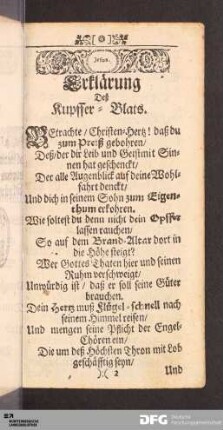 Jesus.
Erklärung
Deß
Kupffer-Blats.
BEtrachte / Christen-Hertz! daß du
zum Preiß gebohren /
Deß / der dir Leib und Geist mit Sin-
nen hat geschenckt /
Der alle Augenblick auf deine Wohl-
fahrt denckt /
Und dich in seinem Sohn zum Eigen-
thum erkohren.
Wie soltest du denn nicht dein Opffer
lassen rauchen /
So auf dem Brand-Altar dort in
die Höhe steigt?
Wer Gottes Thaten hier und seinen
Ruhm verschweigt /
Unwürdig ist / daß er soll seine Güter
brauchen.
Dein Hertz muß Flügel-schnell nach
seinem Himmel reisen /
Und mengen seine Pflicht der Engel-
Chören ein /
Die um deß Höchsten Thron mit Lob
geschäfftig seyn /
):( 2
Und
DFG